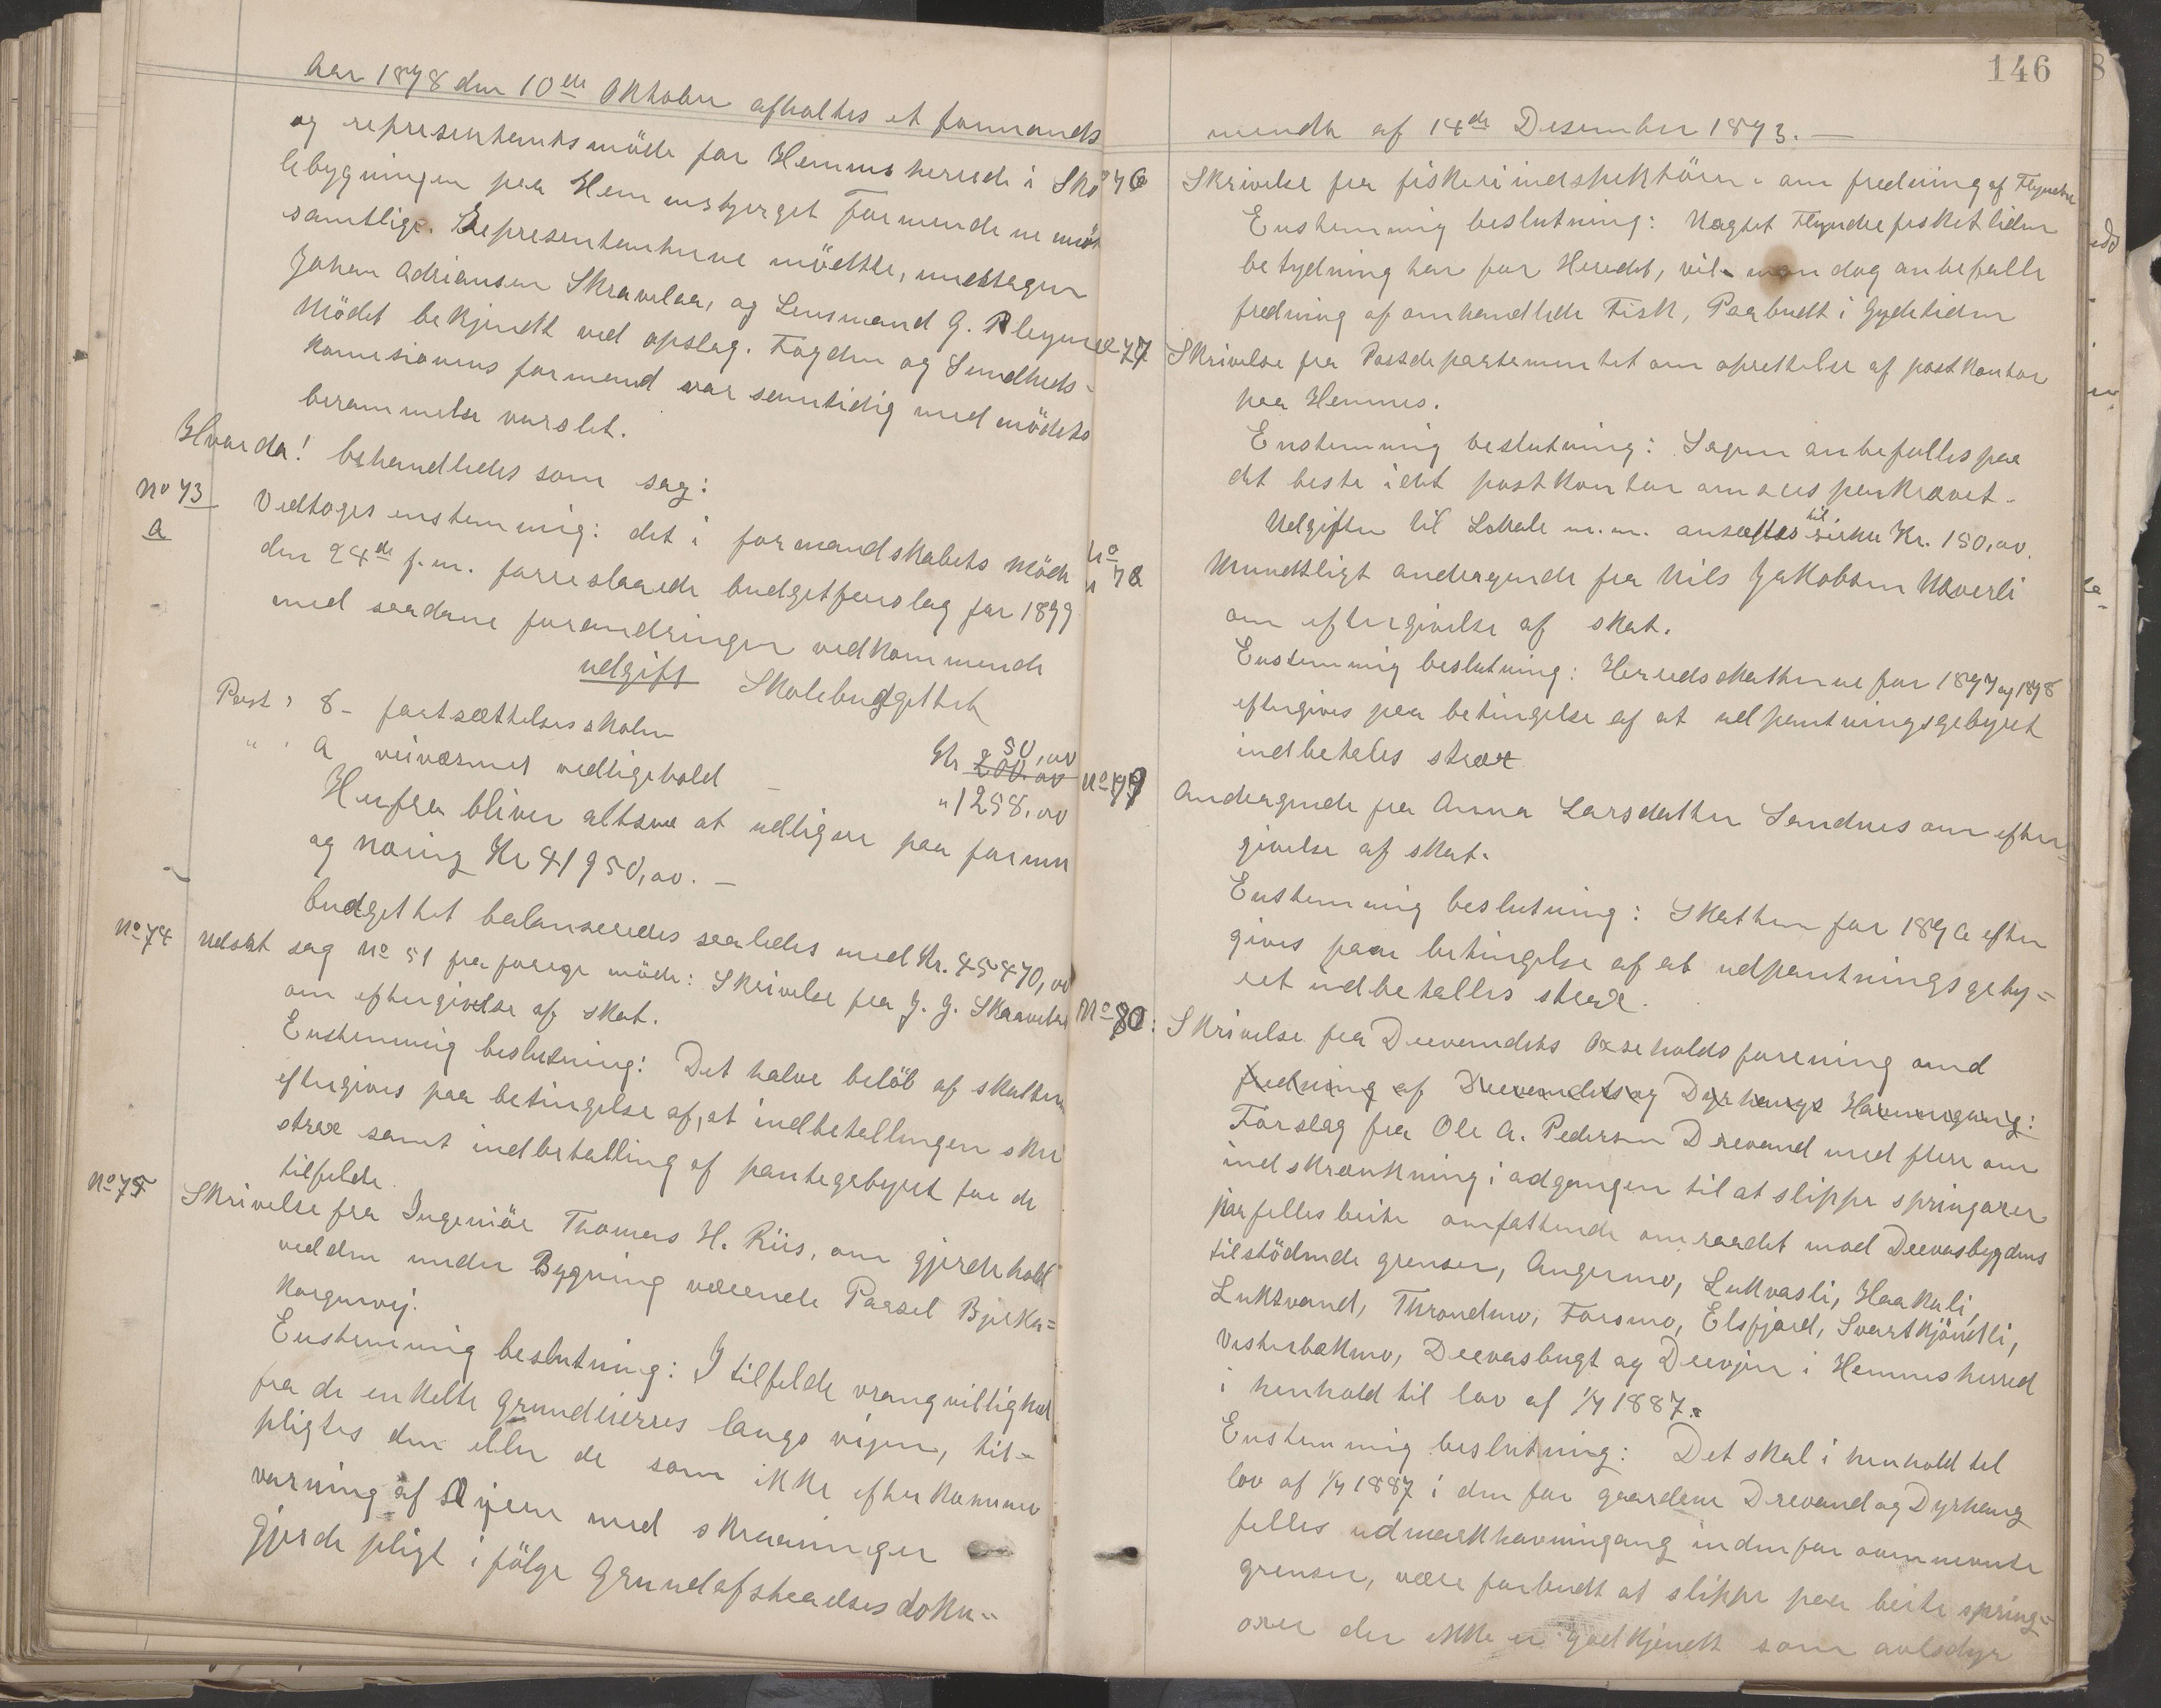 Aar 1898 den 10de Oktober afholtes et formands
og representantsmöde for Hemnes herred i Sko
lebygningen paa Hemnesbjerget Formendene mödt
samtlige. Representanterne mödtte, undtagen
Johan Adriansen Skravelaa, og Lensmand G.
Mödet bekjendt ved opslag. Fogden og Sundheds-
komisionens formand var samtidig med mödets
berammelse varslet.
Hvorda! behandledes som sag:
No 73
a
Vedtoges enstemmig: det i formandskabets möde
den 24de f.m. forreslaaede budgetforslag for 1899
med saadane forandringer vedkommende
udgift Skolebudgettet
Post 8 - fortsættelsesskolen Kr 200.00 50,00
" a veivæsnet vedligehold - " 1258,00
Herfra bliver altsaa at udligne paa formue
og næring Kr 41950,00. —
Budgettet balanseredes saaledes med Kr. 45470,00
No 74 Udsat sag No 51 fra forrige möde: Skrivelse fra J. J. Skravelaa
om eftergivelse af skat.
Enstemmig beslutning: Det halve belöb af skatten
eftergives paa betingelse af, at indbetallingen sker
strax samt indbetalling af pantegebyret for de
tilfelde.
No 75 Skrivelse fra Ingeniör Thomas H. Riis, om gjerdehold
ved den under Bygning værende Parsel Bjerka=
Korgenvej.
Enstemmig beslutning: I tilfelde vrangvillighed
fra de enkelte Grundeierres langs vejen, til-
pligtes den eller de som ikke efterkommer
varning af Vejen med skraaninger
gjerde pligt i fölge Grundafstaaelses doku-
146
mendt af 14de Desember 1893. —
No 76 Skrivelse fra fiskeriindspektören om fredning af Flyndre
Enstemmig beslutning: Uagtet Flyndrefisket liden
betydning har for Heredet, vil man dog anbefalle
fredning af omhandlede Fisk, Paabudt i Gydetiden
No 77 Skrivelse fra Postdepartementet om oprettelse af postkontor
paa Hemnes.
Enstemmig beslutning: Sagen anbefalles paa
det beste idet postkontor ansees paakrævet.
Udgifter til Lokale m.m. ansættes til sirka Kr. 150,00.
No 78 Mundtligt andragende fra Nils Jakobsen Uverli
om eftergivelse af skat.
Enstemmig beslutning: Herredsskatterne for 1897 og 1898
eftergives paa betingelse af at udpantningsgebyret
indbetales strax
No 79 Andragende fra Anna Larsdatter Sandnes om efter=
givelse af skat.
Enstemmig beslutning: Skatten for 189 efter
gives paa betingelse af at udpantningsgeby=
ret indbetalles strax.
No 80: Skrivelse fra Drevvandets Oxeholdsforening
fredning af Drevvandets og Dyrhaugs Havnegang:
Forslag fra Ole A. Pedersen Drevand med flere om
indskrænkning i adgangen til at slippe springoxer
paa felles beite omfattende omraadet mod Drevasbygdens
tilstödende grenser, Angermo, Lukvasli, Haakali,
Luktvand, Throndmo, Forsmo, Elsfjord, Svartkjöndli,
Vesterbækmo, Drevasbugt og Drevjen i Hemnesherred
i henhold til lov af 1/7 1887.
Enstemmig beslutning: Det skal i henhold til
lov af 1/7 1887 i den for gaardene Drevand og Dyrhaug
felles udmarkhavningang indenfor ovennevnte
grenser, være forbudt at slippe paa beite spring=
oxer der ikke er godkjendt som avlsdyr